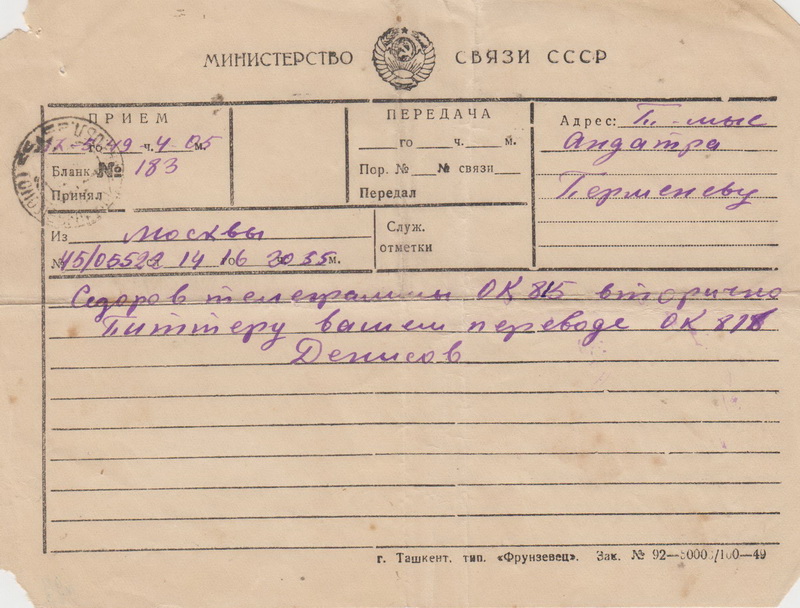 МИНИСТЕРСТВО СВЯЗИ СССР
ПРИЕМ
го 4 ч. 05 м.
Бланк № 183
Принял
ПЕРЕДАЧА
го ч. м.
Пор. № № связи
Передал
Адрес: П-мыс
Андатра
Перменеву
Из Москвы
№ 45/05522 14 го 16 ч. 35 м.
Служ.
отметки
Седоров телеграммы ОК 815 вторично
Питтеру вашем переводе ОК
Денисов
г. Ташкент. тип. «Фрунзевец». Зак. № 92—5000/100—49